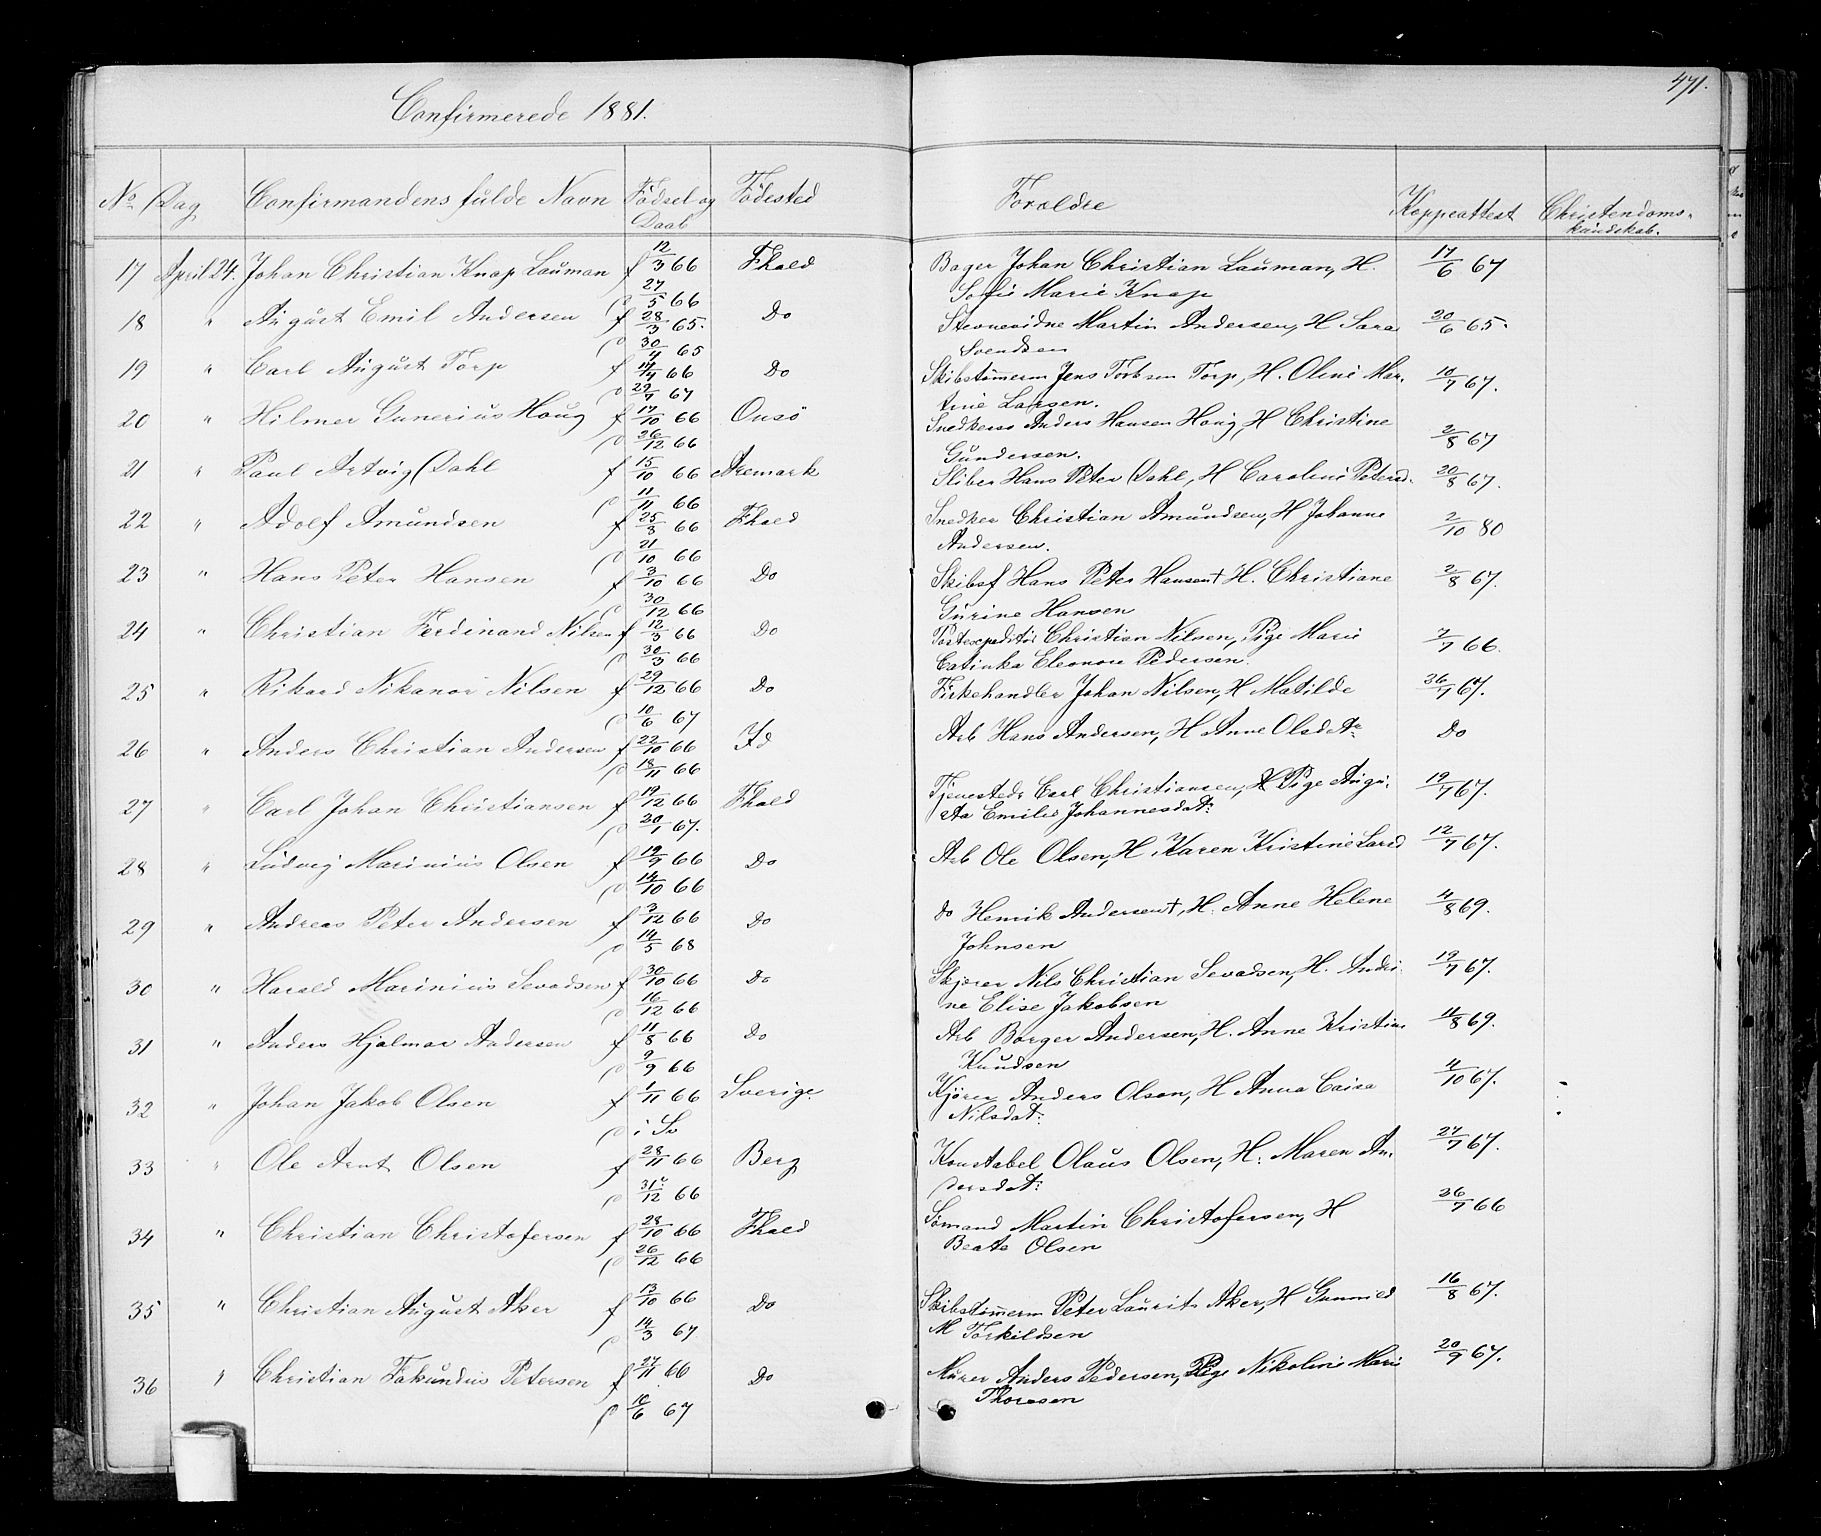 Confirmerede 1881.
471.
No Dag Confirmandens fulde Navn Födsel og Daab Födested Foroldre Koppeattest Christendoms-kundskab.
17 April 24. Johan Christian Knap Lauman f 12/3 66 Fhald Bager Johan Christian Lauman, H. 17/6 67
D 27/5 66 Sofie Marie Knap
18 " August Emil Andersen f 28/3 65. Do Stevnevidne Martin Andersen, H Sara 20/6 65.
D 30/4 65 Svendsen
19 " Carl August Torp f 14/4 66 Do Skibstømerm Jens Torbsen Torp, H. Oline Mar- 10/7 67.
D 29/7 67 tine Larsen.
20 " Hilmer Gunerius Houg f 17/10 66 Onsö Snedkersv Anders Hansen Houg, H Christine 2/8 67
D 26/12 66 Gundersen.
21 " Paul Artvig Dahl f 15/10 66 Aremark Sliber Hans Peter Dahl, H Caroline Petersd. 20/8 67.
D 11/11 66
22 " Adolf Amundsen f 25/3 66 Fhald Snedker Christian Amundsen, H Johanne 2/10 80
D 21/10 66 Andersen.
23 " Hans Peter Hansen f 3/10 66 Do Skibsf Hans Peter Hansen† H. Christiane 2/8 67.
D 30/12 66 Gurine Hansen
24 " Christian Ferdinand Nilsen f 12/3 66 Do Postexpeditör Christian Nilsen, Pige Marie 7/7 66.
D 30/3 66 Catinka Eleonore Pedersen.
25 " Rikard Nikanor Nilsen f 29/12 66 Do Fiskehandler Johan Nilsen, H Matilde 26/7 67.
D 10/6 67
26 " Anders Christian Andersen f 22/10 66 Id Arb Hans Andersen, H Anne Olsdatr Do
D 18/11 66
27 " Carl Johan Christiansen f 19/12 66 Fhald Tjenestedr Carl Christiansen, Pige Augu- 19/7 67.
D 20/1 67. sta Emilie Johannesdat:
28 " Ludvig Marinius Olsen f 19/9 66 Do Arb Ole Olsen, H Karen Kristine Larsd 12/7 67.
D 14/10 66
29 " Andreas Peter Andersen f 3/12 66 Do do Henrik Andersen†, H. Anne Helene 4/8 69.
D 14/5 68 Johnsen
30 " Harald Marinius Sevadsen f 30/10 66 Do Skjærer Nils Christian Sevadsen, H. Andri- 19/7 67.
D 16/12 66 ne Elise Jakobsen
31 " Anders Hjalmar Andersen f 11/8 66 Do Arb Borger Andersen, H. Anne Kristine 11/8 69.
D 9/9 66 Knudsen
32 " Johan Jakob Olsen f 1/11 66 Sverige Kjører Anders Olson, H Anna Caisa 4/10 67.
D i Sv Nilsdat:
33 " Ole Arnt Olsen f 28/11 66 Berg Konstabel Olaus Olsen, H. Maren An- 27/7 67.
D 31/12 66 dersdat:
34 " Christian Christofersen f 28/10 66 Fhald Sömand Martin Christofersen, H 26/7 66
D 26/12 66 Beate Olsen
35 " Christian August Aker f 13/10 66 Do Skibstömerm Peter Laurits Aker, H Gunnild 16/8 67.
D 14/3 67 M Torkildsen
36 " Christian Fakundus Petersen f 27/11 66 Do Murer Anders Pedersen, Pige Nikoline Marie 20/9 67.
D 10/6 67 Thoresen